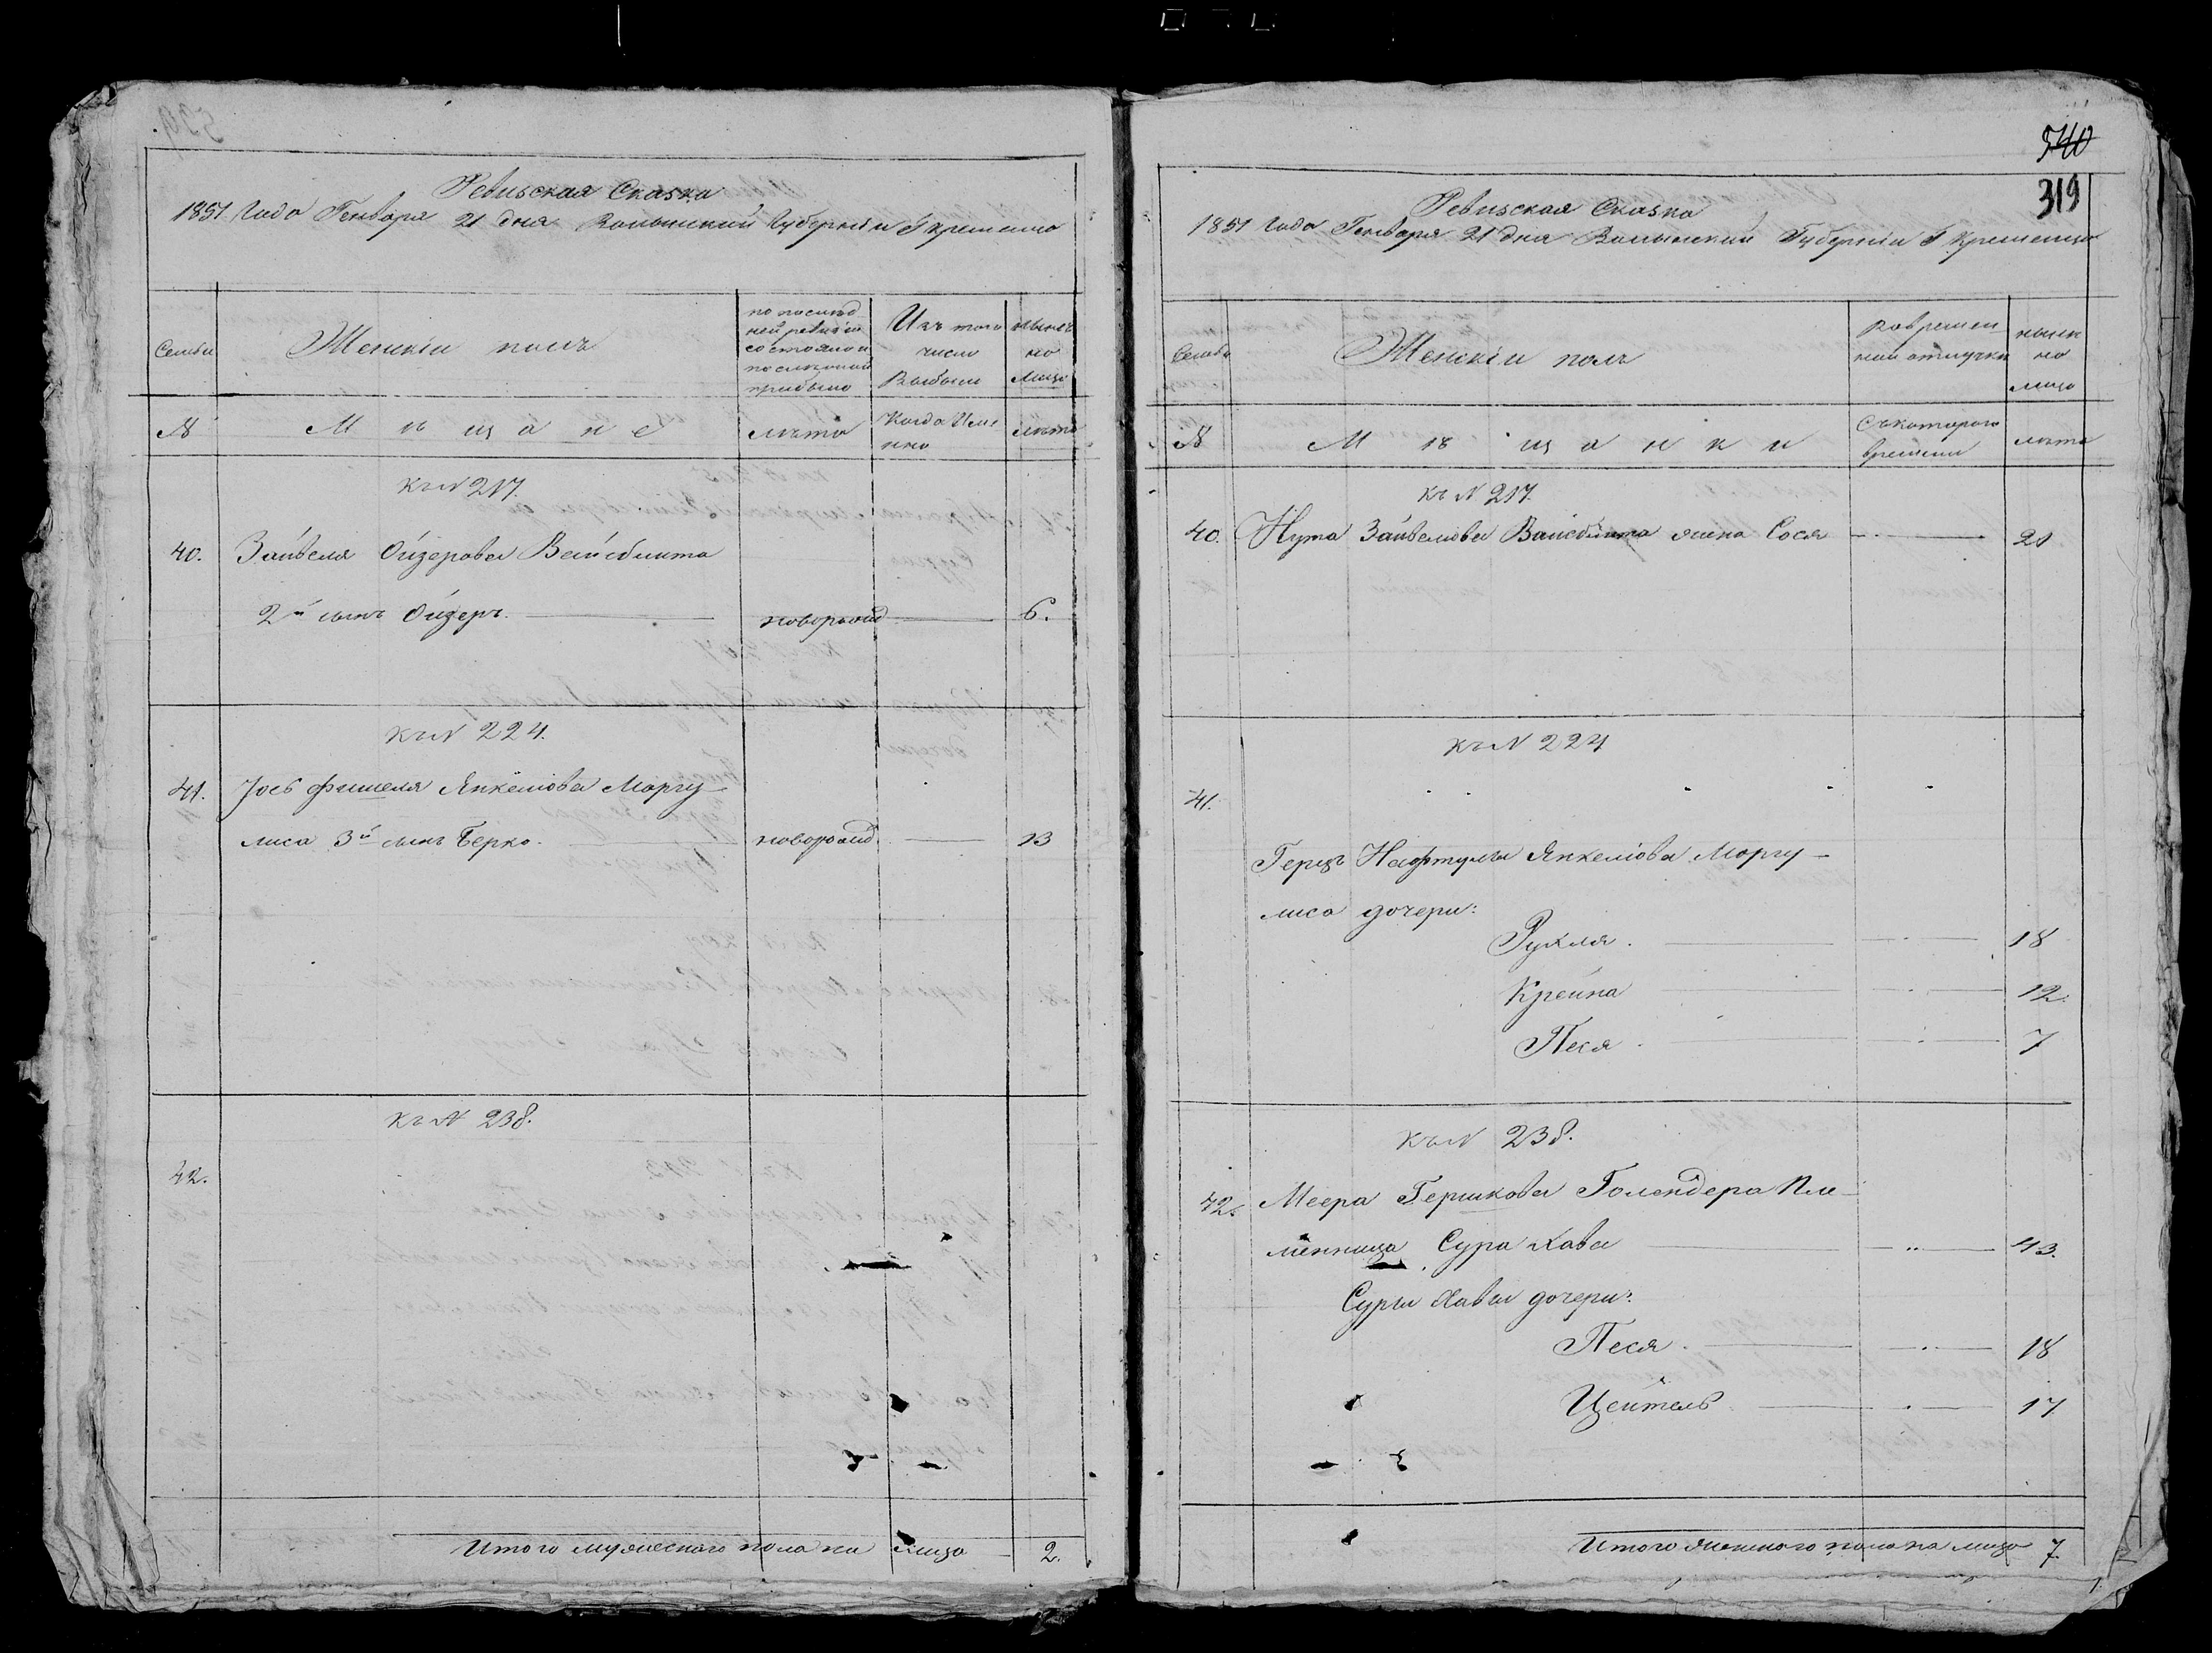 Ревизская Сказка
1851 Года Генваря 21 дня Волынский Губернiи Г Кременца
Семьи
Женскiи полъ
по послѣд
ней ревизiи
состояло и
послѣ оной
прибыло
Изъ того
число
Выбыли
нынѣ
на
лицо
№
М ѣ щ а н е
лѣта
Когда Име
нно
лѣта
къ № 217.
40. Зайвеля Ойзерова Вайсблита
2й сынъ Ойзеръ. новорожд 6.
къ № 224.
41. Iось Фишеля Янкелiова Маргу
лиса 3й сынъ Берко. новорожд. 13
къ № 238.
42.
Итого мужескаго пола на лицо 2.
540
319
Ревизская Сказка
1851 Года Генваря 21 дня Волынский Губернiи Г Кременца
Семьи
Женскiи полъ
Во времен
ной отлучки
нынѣ
на
лицо
№
М ѣ щ а н к и
Съ котораго
времени
лѣта
къ № 217.
40. Нута Зайвелова Вайсблита жена Сося 21
къ № 224
41.
Герцъ Нафтулы Янкелiова Маргу-
лиса дочери:
Рухля. 18
Крейна 12.
Песя. 7
къ № 238.
42. Меера Гершкова Голендера Пле-
менница Сура Хава 43.
Суры Хавы дочери:
Песя. 18
Цейтель 17
Итого женскаго пола на лицо 7